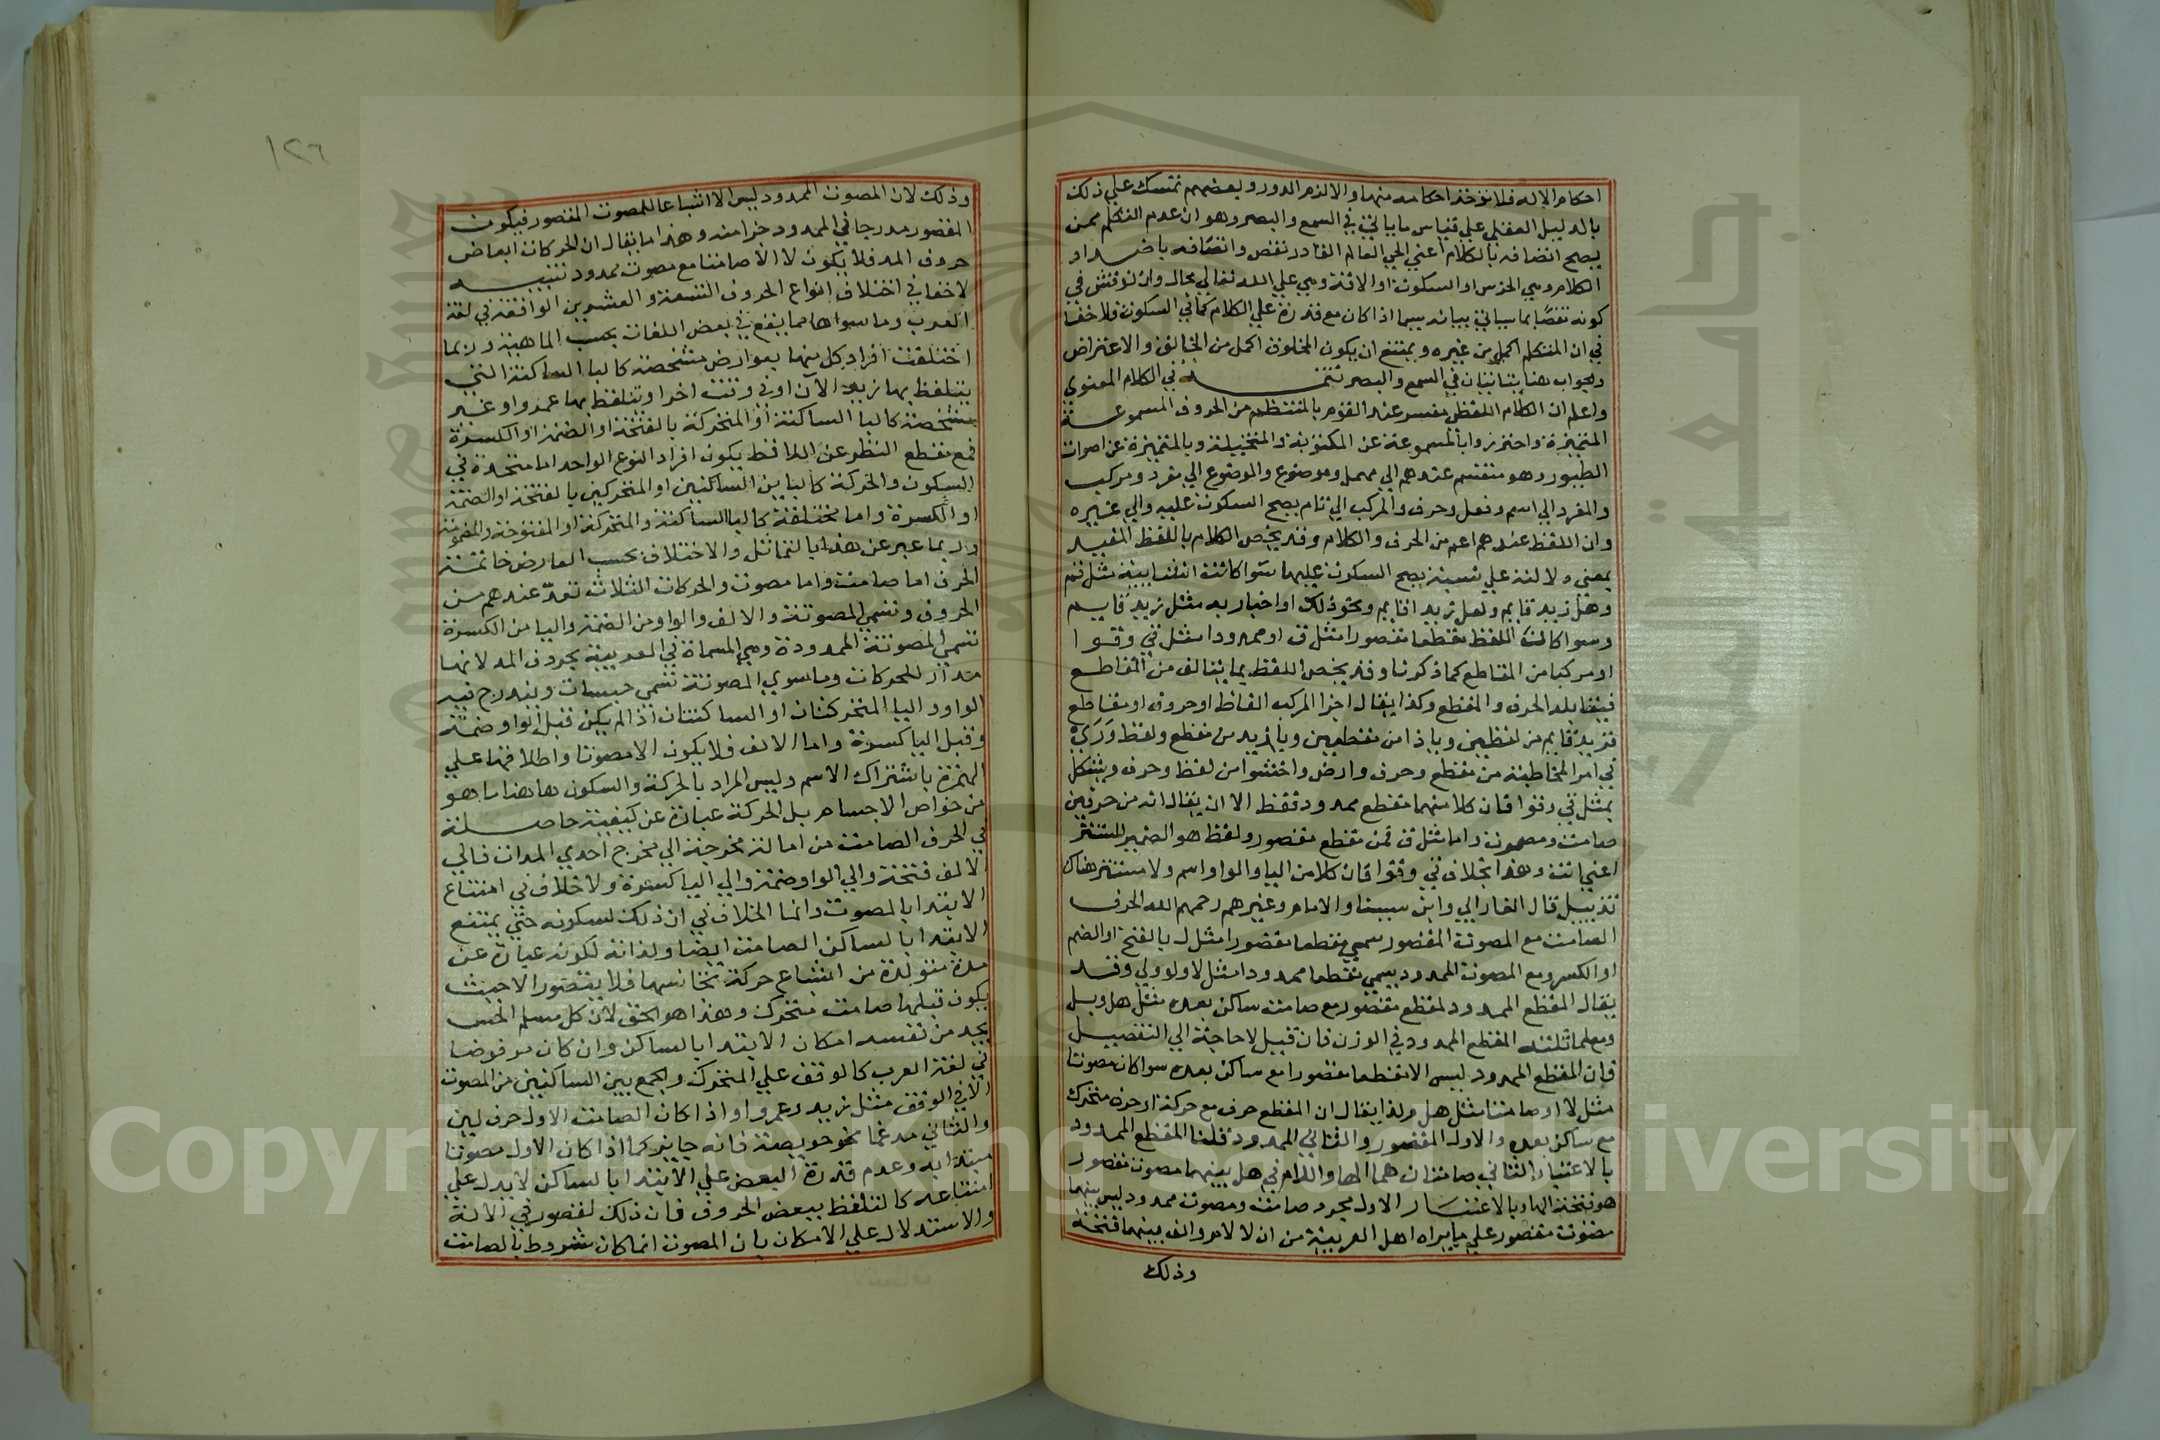 احكام الاله فلا توخذ احكامه منها والا لزم الدور وبعضهم تمسك علي ذلك
بالدليل العقلي علي قياس ما ياتي في السمع والبصر وهو ان عدم التكلم ممن
يصح اتصافه بالكلام اعني الحي العالم القادر نقص واتصافه باضداد
الكلام وهي الخرس او السكوت او الافة وهي علي الله تعالي محال وان نوقش في
كونه نقصا بما سياتي بيانه سيما اذا كان مع قدرة علي الكلام كما في السكوت فلا خفا
في ان المتكلم اكمل من غيره ويمتنع ان يكون المخلوق اكمل من الخالق والاعتراض
والجواب هنا يتاتيان في السمع والبصر تتمة في الكلام المعنوي
واعلم ان الكلام اللفظي مفسر عند القوم بالمنتظم من الحروف المسموعة
المتميزة واحترزوا بالمسموعة عن المكتوبة والمتخيلة وبالمتميزة عن اصوات
الطيور وهو منقسم عندهم الي مهمل وموضوع والموضوع الي مفرد ومركب
والمفرد الي اسم وفعل وحرف والمركب الي تام يصح السكوت عليه والي غيره
وان اللفظ عندهم اعم من الحرف والكلام وقد يخص الكلام باللفظ المفيد
بمعني دلالته علي نسبة يصح السكوت عليها سوا كانت انشائية مثل قم
وهل زيد قايم ولعل زيدا قايم ونحو ذلك او اخبارية مثل زيد قايم
وسوا كان اللفظ مقطعا مقصورا مثل ق او ممدودا مثل قي وقوا
او مركبا من المقاطع كما ذكرنا وقد يخص اللفظ بما يتالف من المقاطع
فيقابله الحرف والمقطع وكذا يقال اجزا المركب الفاظ او حروف او مقاطع
فزيد قايم من لفظين ويا ذا من مقطعين ويا زيد من مقطع ولفظ
في امر المخاطبة من مقطع وحرف وارض واخشوا من لفظ وحرف ويشكل
بمثل قي وقوا فان كلا منهما مقطع ممدود فقط الا ان يقال انه من حرفين
صامت ومصوت واما مثل ق فمن مقطع مقصور ولفظ هو الضمير المستتر
اعني انت وهذا بخلاف قي وقوا فان كلا من اليا والواو اسم ولا مستتر هناك
تذييل قال الفارابي وابن سينا والامام وغيرهم رحمهم الله الحرف
الصامت مع المصوت المقصور يسمي مقطعا مقصورا مثل ل بالفتح او الضم
او الكسر ومع المصوت الممدود يسمي مقطعا ممدودا مثل لا ولو ولي وقد
يقال المقطع الممدود لمقطع مقصور مع صامت ساكن بعده مثل هل وبل
المقطع الممدود في الوزن فان قيل لا حاجة الي التفصيل
فان المقطع الممدود ليس الا مقطعا مقصورا مع ساكن بعده سوا كان مصوتا
مثل لا او صامتا مثل هل ولذا يقال ان المقطع حرف مع حركة او حرف متحرك
مع ساكن بعده والاول المقصور والثاني الممدود قلنا المقطع الممدود
بالاعتبار الثاني صامتان هما الها واللام في هل بينهما مصوت مقصور
هو فتحة الها وبالاعتبار الاول مجرد صامت ومصوت ممدود ليس بينهما
مصوت مقصور علي ما يراه اهل العربية من ان لا لام والف بينهما فتحة
وذلك
١٢٦
وذلك لان المصوت الممدود ليس الا اشباعا للمصوت المقصور فيكون
المقصور مدرجا في الممدود جزا منه وهذا ما يقال ان الحركات ابعاض
حروف المد فلا يكون لا الا صامتا مع مصوت ممدود تنبيه
لا خفا في اختلاف انواع الحروف التسعة والعشرين الواقعة في لغة
العرب وما سواها مما يقع في بعض اللغات بحسب الماهية وربما
اختلفت افراد كل منها بعوارض مشخصة كاليا الساكنة التي
يتلفظ بها زيد الان او في وقت اخر او يتلفظ بها عمرو او غير
مشخصة كاليا الساكنة او المتحركة بالفتحة او الضمة او الكسرة
فمع قطع النظر عن اللافظ يكون افراد النوع الواحد اما متحدة في
السكون والحركة كاليايين الساكنين او المتحركين بالفتحة او الضمة
او الكسرة واما مختلفة كاليا الساكنة والمتحركة او المفتوحة والمضمومة
وربما عبر عن هذا بالتماثل والاختلاف بحسب العارض خاتمة
الحرف اما صامت واما مصوت والحركات الثلاث تعد عندهم من
الحروف وتسمي المصوتة والالف والواو من الضمة واليا من الكسرة
تسمي المصوتة الممدودة وهي المسماة في العربية بحروف المد لانها
مدات للحركات وما سوي المصوتة تسمي حبسات ويندرج فيه
الواو واليا المتحركتان او الساكنتان اذا لم يكن قبل الواو ضمة
وقبل اليا كسرة واما الالف فلا يكون الا مصوتا واطلاقها علي
الهمزة باشتراك الاسم وليس المراد بالحركة والسكون هاهنا ما هو
من خواص الاجسام بل الحركة عبارة عن كيفية حاصلة
في الحرف الصامت من امالة مخرجه الي مخرج احدي المدات فالي
الالف فتحة والي الواو ضمة والي اليا كسرة ولا خلاف في امتناع
الابتدا بالمصوت وانما الخلاف في ان ذلك لسكونه حتي يمتنع
الابتدا بالساكن الصامت ايضا ولذاته لكونه عبارة عن
مدة متولدة من اشباع حركة تجانسها فلا يتصور الا حيث
يكون قبلها صامت متحرك وهذا هو الحق لان كل مسلم الحس
يجد من نفسه امكان الابتدا بالساكن وان كان مرفوضا
في لغة العرب كالوقف علي المتحرك والجمع بين الساكنين من المصوت
الا في الوقف مثل زيد وعمرو او اذا كان الصامت الاول حرف لين
والثاني مدغما نحو خويصة فانه جايز كما اذا كان الاول مصوتا
وعدم قدرة البعض علي الابتدا بالساكن لا يدل علي
امتناعه كالتلفظ ببعض الحروف فان ذلك لقصور في الالة
والاستدلال علي الامكان بان المصوت انما كان مشروط بالصامت
Copyright © King Saud University
جامعة الملك سعود